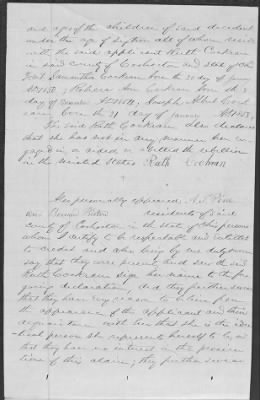 and ages of the children of said decedent
under the age of sixteen all of whom reside
with the said applicant Ruth Cochran
in said county of Coshocton and State of Ohio
Samantha Cochran born the 20 day of January
Rebecca Ann Cochran born the 3
day of Joseph Albert Coch
ran born the 21 day of January
The said Ruth Cochran also declares
that she has not in any manner been en
gaged in or aided or abetted the rebellion
in the United States Ruth Cochran
Also personally appeared
and residents of said
county of Coshocton in the state of Ohio persons
whom I certify to be respectable and entitled
to credit and who being by me duly sworn
say that they were present and saw the said
Ruth Cochran sign her name to the fore
going declaration, and they further swear
that they have every reason to believe from
the appearance of the applicant and their
acquaintance with her that she is the iden
tical person she represents herself to be, and
that they have no interest in the prosecu
tion of this claim, they further swear